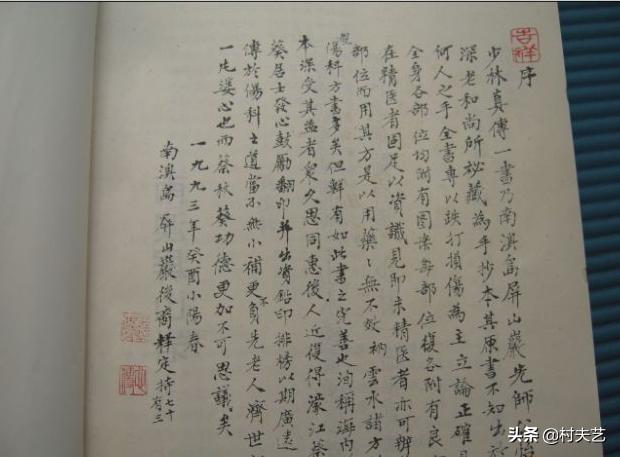 吉祥
序
少林真傳一書乃南澳島屏山巖先師
深老和尚所祕藏為手抄本其原書不知出於
何人之手全書專以跌打損傷為主立論正確
全身各部位均附有圖案每部位復各附有良
在精醫者固足以資識見即未精醫者亦可辨
部位而用其方是以用藥〻無不效衲雲水諸方
傷科方書多矣但鮮有如此書之完善也洵稱海內
本深受其益者眾久思同惠後人近復得濠江蔡
葵居士發心鼓勵翻印并出資鉛印排榜以期廣遠
傳於傷科士道當不無小補更不負先老人濟世
一片婆心也而蔡秋葵功德更加不可思議矣
一九九三年癸酉小陽春
南澳島屏山巖後裔釋定持七十有三
头条@村夫艺